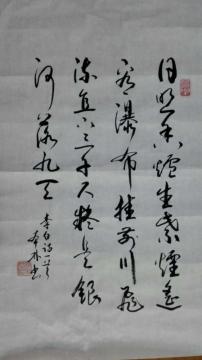 日照香爐生紫煙遙
看瀑布挂前川飛
流直下三千尺疑是銀
河落九天
李白詩一首
書